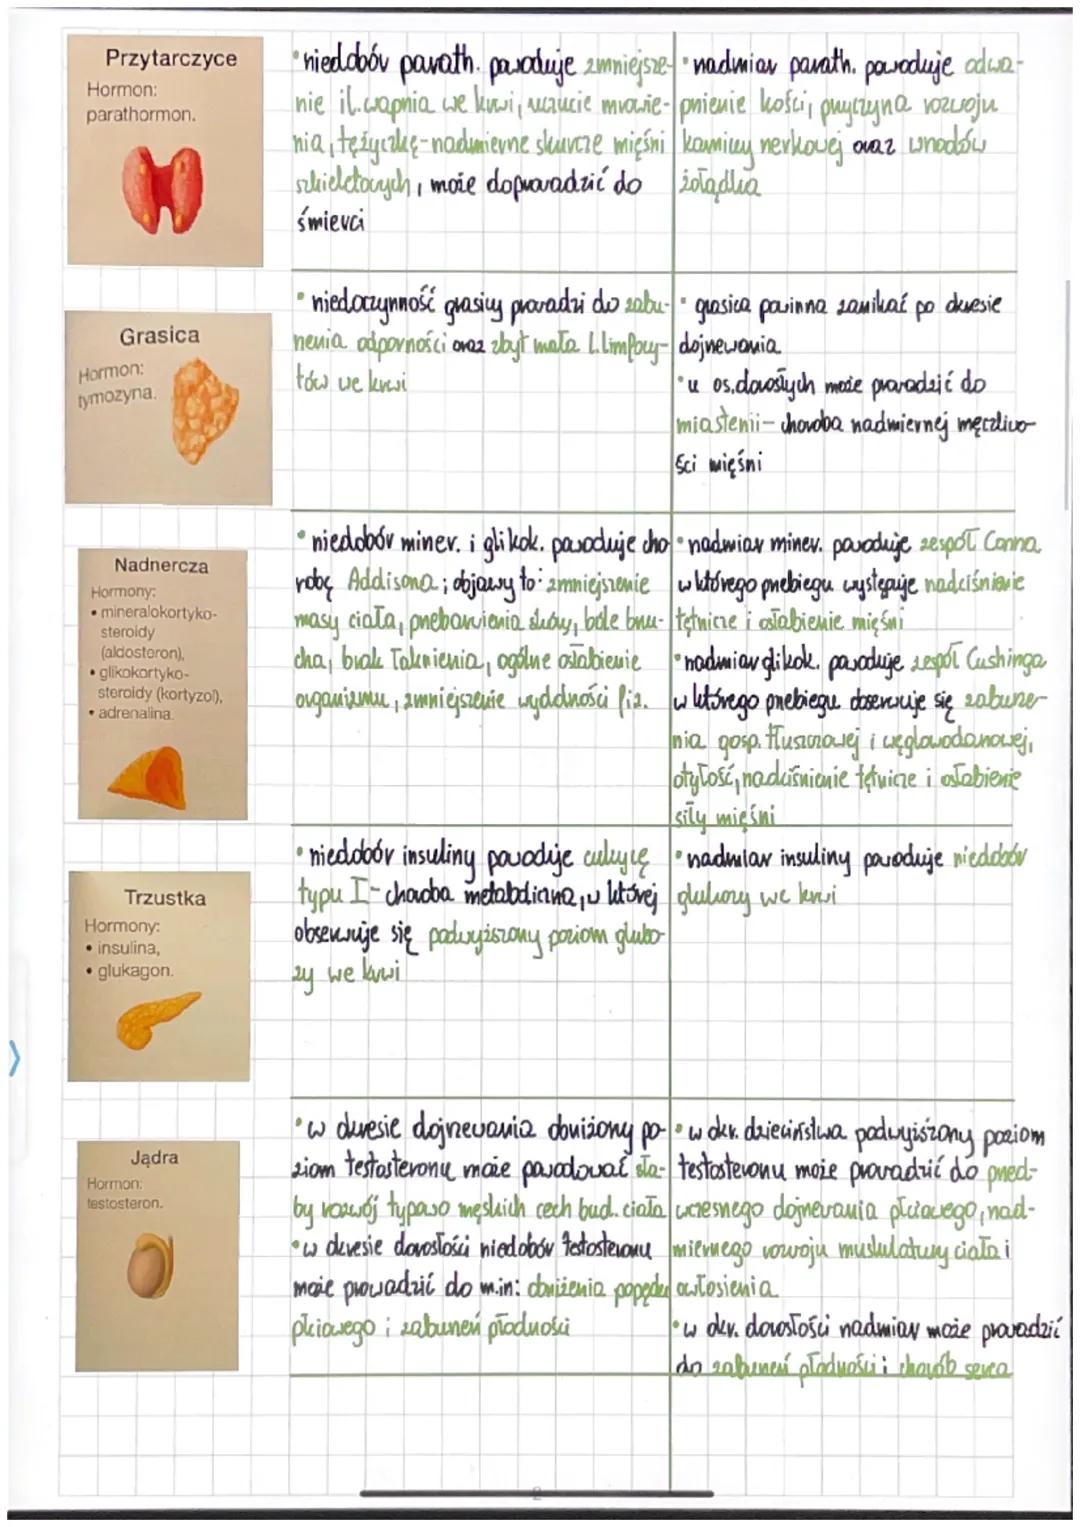 Przytarczyce
Hormon:
parathormon.
• niedobór parath. powoduje zmniejsze-
nie il. wapnia we krwi, uczucie mrowie-
nia, tężyczkę - nadmierne skurcze mięśni
szkieletowych, może doprowadzić do
śmierci
• nadmiar parath. powoduje odwa-
pnienie kości, przyczyna rozwoju
kamicy nerkowej oraz wrzodów
żołądka
Grasica
Hormon:
tymozyna.
• niedoczynność grasicy prowadzi do zabu-
rzenia odporności oraz zbyt mała l. limfocy-
tów we krwi
• grasica powinna zanikać po okresie
dojrzewania
• u os. dorosłych może prowadzić do
miastenii - choroba nadmiernej męczliwo-
ści mięśni
Nadnercza
Hormony:
• mineralokortyko-
steroidy
(aldosteron),
• glikokortyko-
steroidy (kortyzol),
• adrenalina.
• niedobór miner. i glikok. powoduje cho
robę Addisona; objawy to: zmniejszenie
masy ciała, przebarwienia skóry, bóle brzu-
cha, brak łaknienia, ogólne osłabienie
organizmu, zmniejszenie wydolności fiz.
• nadmiar miner. powoduje zespół Conna
w którego przebiegu występuje nadciśnienie
tętnicze i osłabienie mięśni
• nadmiar glikok. powoduje zespół Cushinga
w którego przebiegu obserwuje się zaburze-
nia gosp. tłuszczowej i węglowodanowej,
otyłość, nadciśnienie tętnicze i osłabienie
siły mięśni
Trzustka
Hormony:
• insulina,
• glukagon.
• niedobór insuliny powoduje cukrzycę
typu I - choroba metaboliczna, w której
obserwuje się podwyższony poziom gluko-
zy we krwi
• nadmiar insuliny powoduje niedobór
glukozy we krwi
Jądra
Hormon:
testosteron.
• w okresie dojrzewania obniżony po-
ziom testosteronu może powodować sła-
by rozwój typowo męskich cech bud. ciała
• w okresie dorosłości niedobór testosteronu
może prowadzić do m.in: obniżenia popędu
płciowego i zaburzeń płodności
• w okr. dzieciństwa podwyższony poziom
testosteronu może prowadzić do przed-
wczesnego dojrzewania płciowego, nad-
miernego rozwoju muskulatury ciała i
owłosienia
• w okr. dorosłości nadmiar może prowadzić
do zaburzeń płodności i chorób serca
2